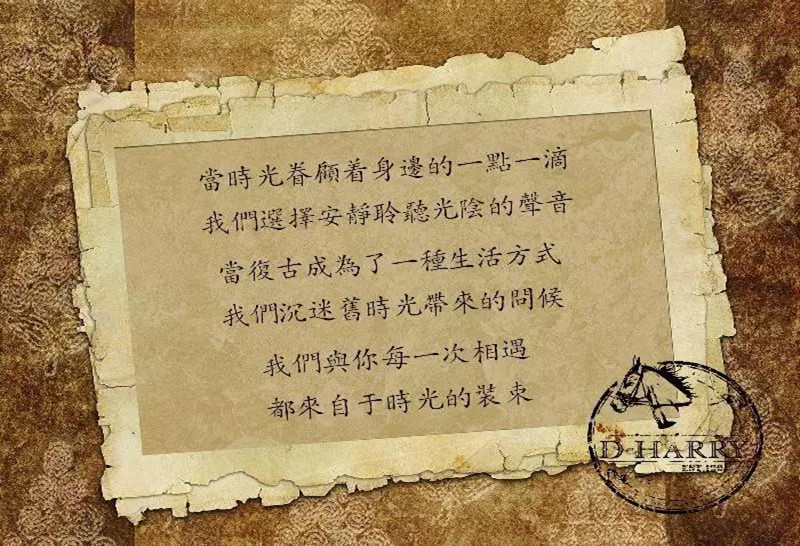 當時光眷顧着身邊的一點一滴
我們選擇安靜聆聽光陰的聲音
當復古成為了一種生活方式
我們沉迷舊時光帶來的問候
我們與你每一次相遇
都來自于時光的裝束
D·HARRY